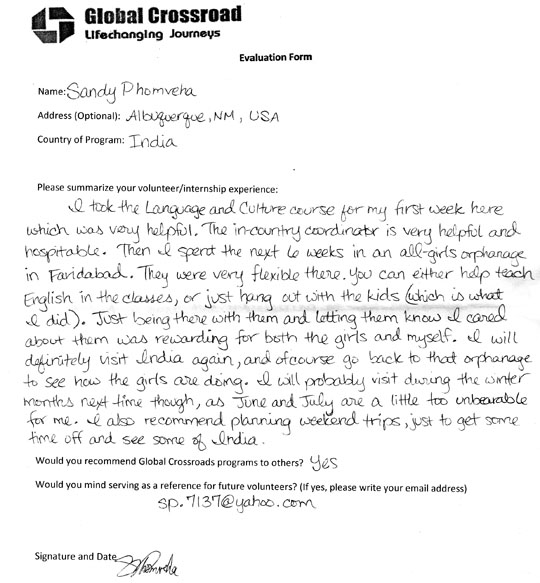 Global Crossroad
Lifechanging Journeys
Evaluation Form
Name: Sandy Phomveha
Address (Optional): Albuquerque, NM, USA
Country of Program: India
Please summarize your volunteer/internship experience:
I took the Language and Culture course for my first week here
which was very helpful. The in-country coordinator is very helpful and
hospitable. Then I spent the next 6 weeks in an all-girls orphanage
in Faridabad. They were very flexible there. You can either help teach
English in the classes, or just hang out with the kids (which is what
I did). Just being there with them and letting them know I cared
about them was rewarding for both the girls and myself. I will
definitely visit India again, and ofcourse go back to that orphanage
to see how the girls are doing. I will probably visit during the winter
months next time though, as June and July are a little too unbearable
for me. I also recommend planning weekend trips, just to get some
time off and see some of India.
Would you recommend Global Crossroads programs to others? Yes
Would you mind serving as a reference for future volunteers? (If yes, please write your email address)
sp.7137@yahoo.com
Signature and Date